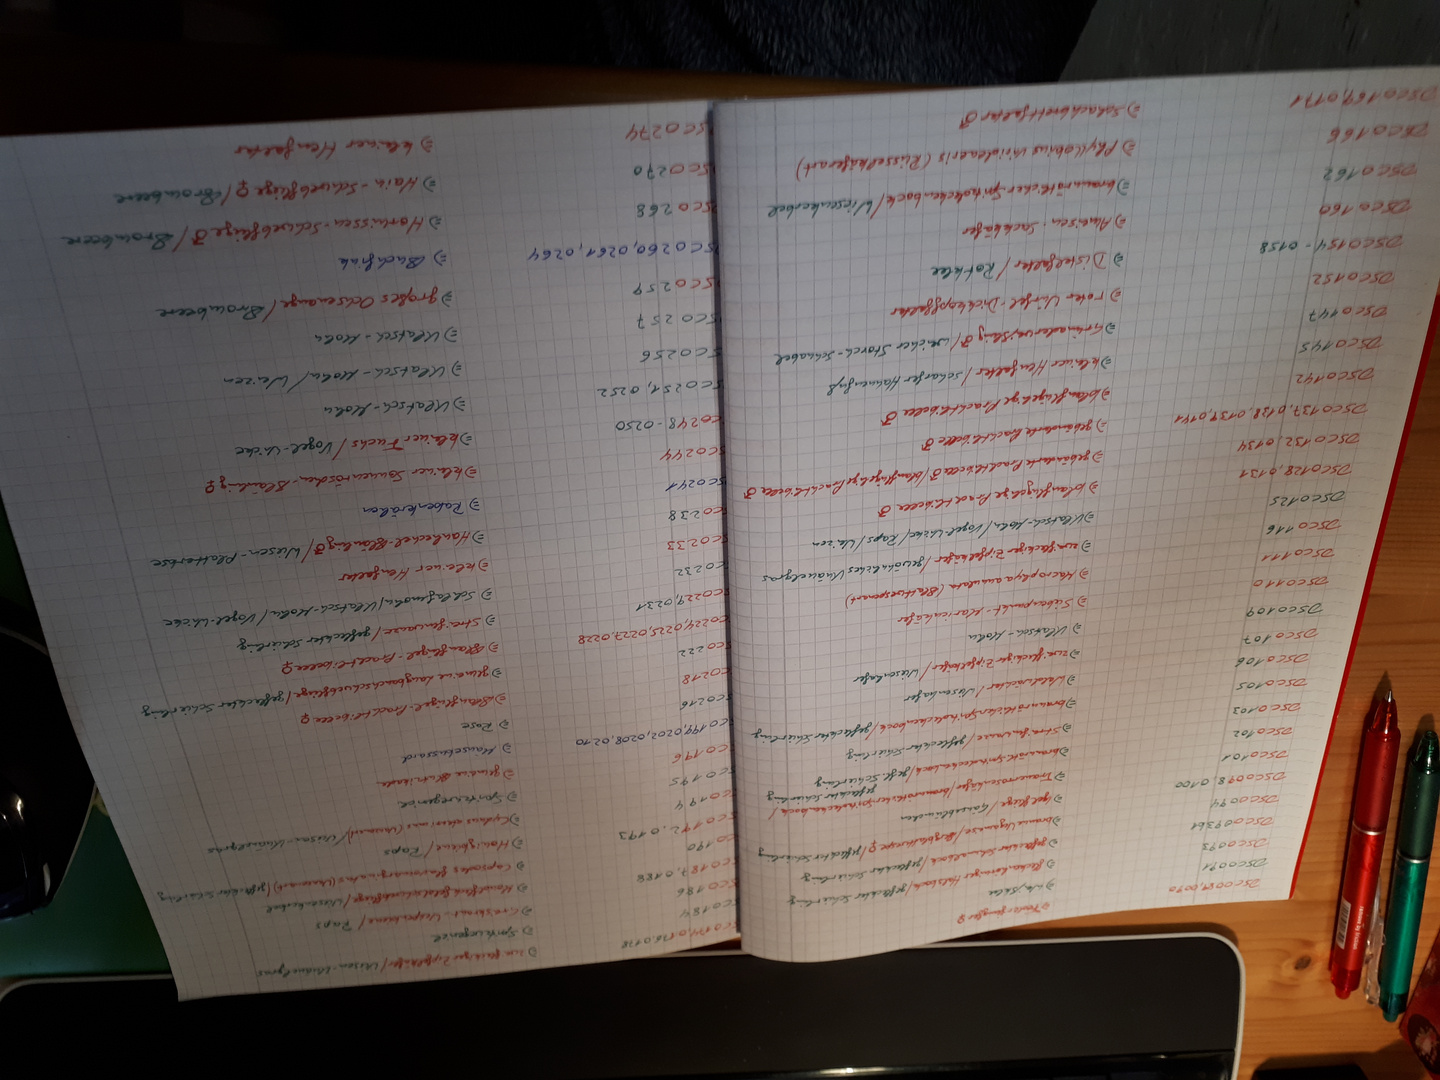 DSC0089,0090 => Federjungfer ♀
DSC0091 => Weißklee
DSC0093 => fleckenhörniger Halsbock/gefleckter Schierling
DSC0093b1 => gefleckter Schmalbock/gefleckter Schierling
DSC0094 => braune /Bergblattwespe ♀/gefleckter Schierling
DSC0098,0100 => Igelfliege/Gänseblümchen
DSC0101 => Trauerrosenkäfer/braunrötlicher Spitzdeckenbock/
gefleckter Schierling
DSC0102 => braunrötl. Spitzdeckenbock/gefl. Schierling
DSC0103 => Streifenwanze/gefleckter Schierling
DSC0105 => braunrötlicher Spitzdeckenbock/gefleckter Schierling
DSC0106 => Waldwächter/Wiesenhafer
DSC0107 => zweifleckiger Zipfelkäfer/Wiesenhafer
DSC0109 => Klatsch-Mohn
DSC0110 => Siebenpunkt-Marienkäfer
DSC0111 => Macrophya annulata (Blattwespenart)
DSC0116 => zweifleckiger Zipfelkäfer/gewöhnliches Knäuelgras
DSC0125 => Klatsch-Mohn/Vogel-Wicke/Raps/Weizen
DSC0128,0131 => blauflügelige Prachtlibelle ♂
DSC0132,0134 => gebänderte Prachtlibelle ♂/blauflügelige Prachtlibelle ♂
DSC0137,0138,0139,0141 => gebänderte Prachtlibelle ♂
DSC0142 => blauflügelige Prachtlibelle ♂
DSC0145 => kleiner Heufalter/scharfer Hahnenfuß
DSC0147 => Grünaderweißling ♂/weicher Storch-Schnabel
DSC0152 => roter Würfel-Dickkopffalter
DSC0154-0158 => Distelfalter/Rotklee
DSC0160 => Ameisen-Sackkäfer
DSC0162 => braunrötlicher Spitzdeckenbock/Wiesenkerbel
DSC0166 => Phyllobius virideaeris (Rüsselkäferart)
DSC0169,0171 => Schachbrettfalter ♂
SC0174,0176,0178 => zweifleckiger Zipfelkäfer/Wiesen-Knäuelgras
SC0184 => Spitzwegerich
SC0186 => Greiskraut-Wespenbiene/Raps
SC0187,0188 => Mondfleckfeldschwebfliege/Wiesenkerbel
SC0190 => Capsodes flavomarginatus (Wanzenart)/gefleckter Schierling
SC0192,0193 => Honigbiene/Raps
SC0194 => Cydnus aterrimus (Wanzenart)/Wiesen-Knäuelgras
SC0195 => Spitzwegerich
SC0196 => gemeine Blutzikade
SC0199,0202,0208,0210 => Mäusebussard
SC0216 => Rose
SC0218 => Blauflügel-Prachtlibelle ♀
SC0222 => gemeine Langbauchschwebfliege/gefleckter Schierling
SC0224,0225,0227,0228 => Blauflügel-Prachtlibelle ♀
SC0229,0231 => Streifenwanze/gefleckter Schierling
SC0232 => Schlafmohn/Klatsch-Mohn/Vogel-Wicke
SC0233 => kleiner Heufalter
SC0238 => Hauhechel-Bläuling ♂/Wiesen-Platterbse
SC0241 => Rabenkrähen
SC0244 => kleiner Sonnenröschen-Bläuling ♀
SC0248-0250 => kleiner Fuchs/Vogel-Wicke
SC0251,0252 => Klatsch-Mohn
SC0256 => Klatsch-Mohn/Weizen
SC0257 => Klatsch-Mohn
SC0259 => großes Ochsenauge/Brombeere
SC0260,0261,0264 => Buchfink
SC0268 => Hornissen-Schwebfliege ♂/Brombeere
SC0270 => Hain-Schwebfliege ♀/Brombeere
SC0274 => kleiner Heufalter